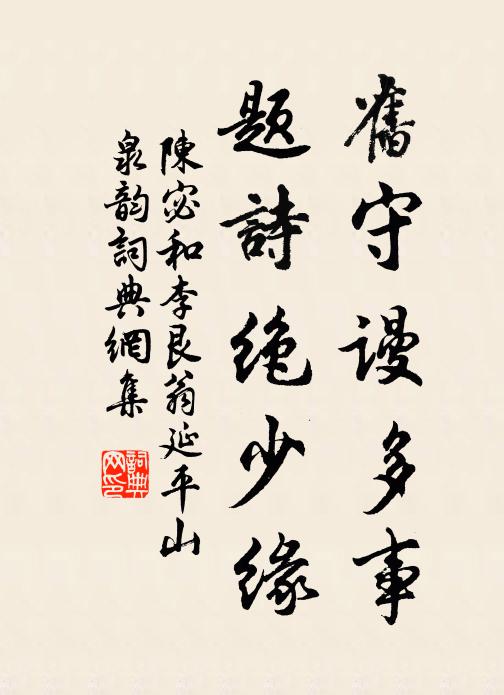 舊守謾多事
題詩絶少緣
陳宓和李艮翁延平山
泉韵詞典網集
詞典網印